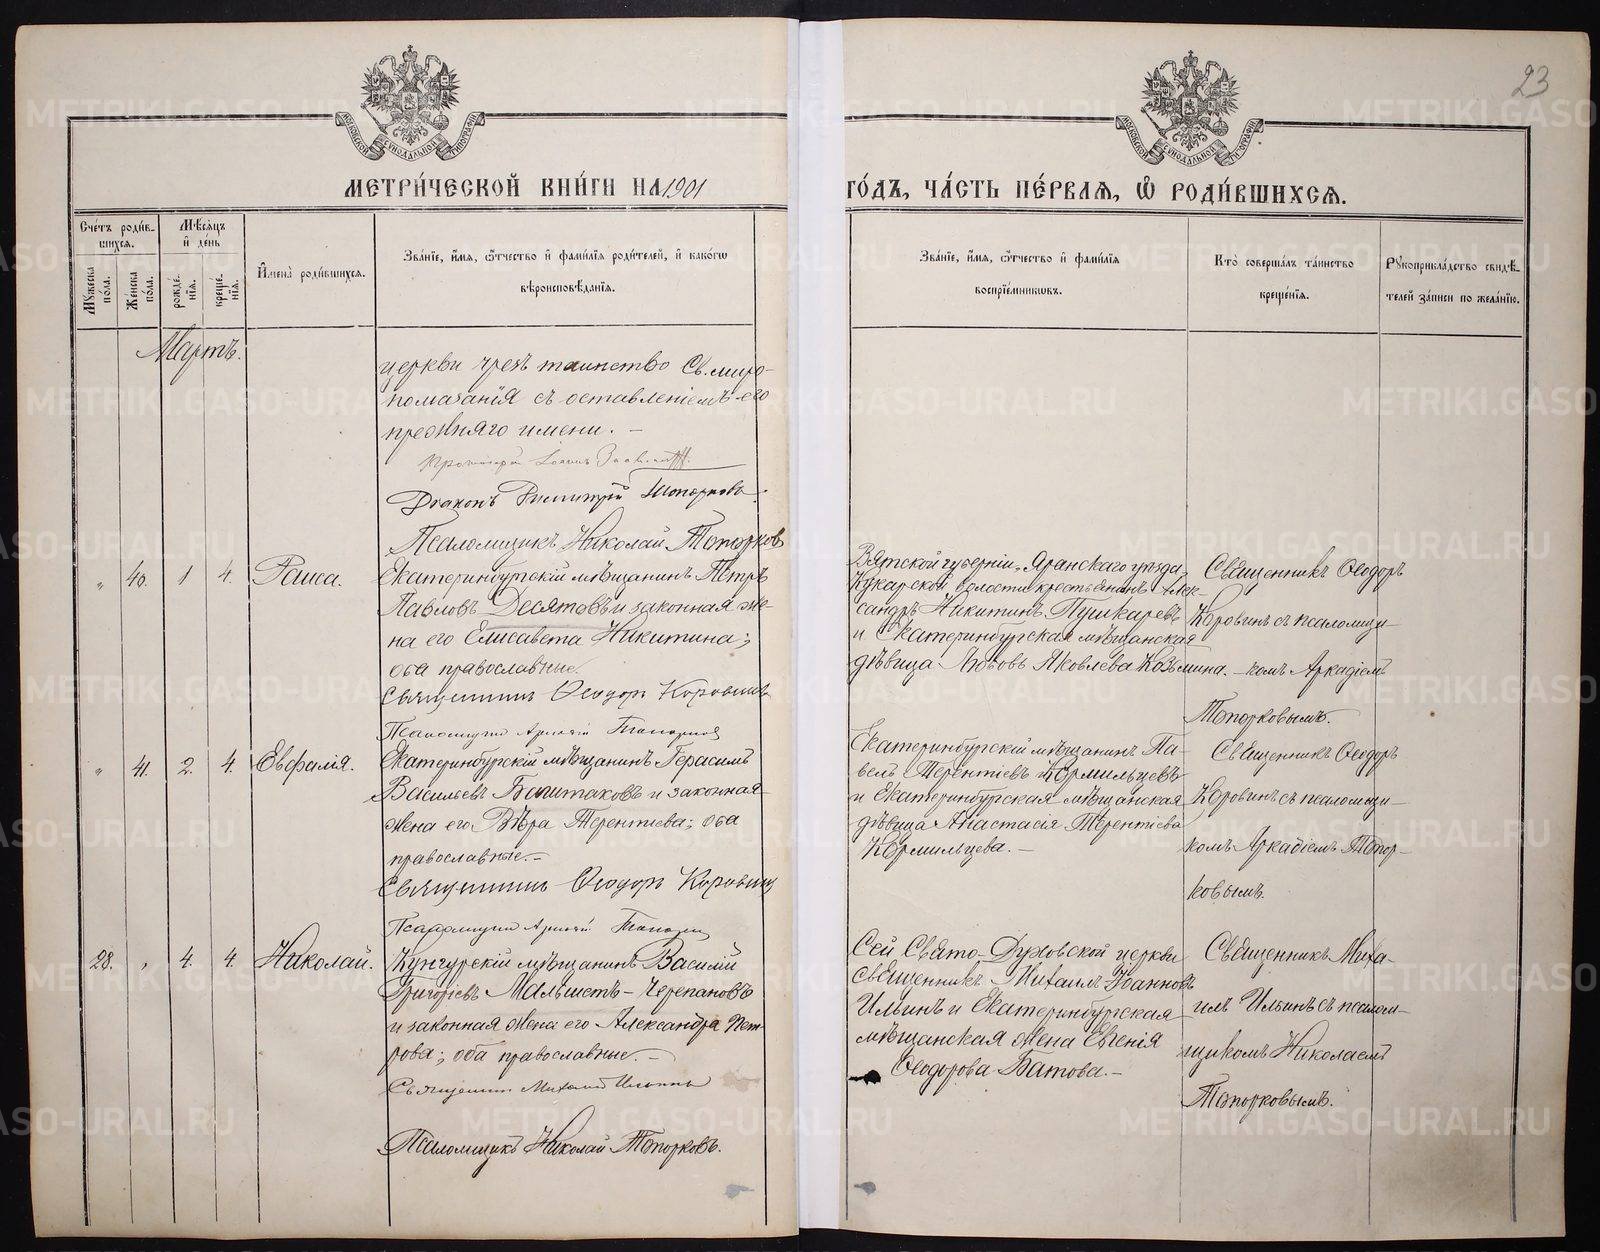 23
МЕТРИ́ЧЕСКОЙ КНИ́ГИ НА 1901
ГО́ДЪ, ЧА́СТЬ ПЕ́РВАѦ, Ѡ҆ РОДИ́ВШИХСѦ.
Сче́тъ роди́вшихсѧ.
Мꙋ́жеска по́ла.
Же́нска по́ла.
Мѣ́сѧцъ и҆ де́нь
рожде́нїѧ.
креще́нїѧ.
И҆мена̀ роди́вшихсѧ.
Зва́нїе, и҆́мѧ, ѻ҆́тчество и҆ фами́лїѧ роди́телей, и҆ како́гѡ
вѣроисповѣ́данїѧ.
Зва́нїе, и҆́мѧ, ѻ҆́тчество и҆ фами́лїѧ
воспрїе́мникѡвъ.
Кто̀ соверша́лъ та́инство
креще́нїѧ.
Рꙋкоприкла́дство свидѣ́телей за́писи по жела́нїю.
Мартъ.
церкви чрезъ таинство Св. миро-
помазанія съ оставленіемъ его
прежняго имени. –
Діаконъ Димитрій Топорковъ.
Псаломщикъ Николай Топорков
„ 40. 1 4. Раиса.
Екатеринбургскій мѣщанинъ Петръ
Павловъ Десятовъ и законная же-
на его Елисавета Никитина;
оба православные.
Священникъ Ѳеодоръ Коровинъ
Псаломщикъ Аркадій Топорков
Вятской губерніи, Яранскаго уѣзда,
Кукарской волости крестьянинъ Алек-
сандръ Никитинъ Пушкаревъ
и Екатеринбургская мѣщанская
дѣвица Любовь Яковлева Козьмина. –
Священникъ Ѳеодоръ
Коровинъ съ псаломщи-
комъ Аркадіемъ
Топорковымъ.
„ 41. 2. 4. Евфалія.
Екатеринбургскій мѣщанинъ Герасимъ
Васильевъ Баштаковъ и законная
жена его Вѣра Терентіева; оба
православные. –
Священникъ Ѳеодоръ Коровинъ
Псаломщикъ Аркадій Топорков
Екатеринбургскій мѣщанинъ Па-
велъ Терентіевъ Кормильцевъ
и Екатеринбургская мѣщанская
дѣвица Анастасія Терентіева
Кормильцева. –
Священникъ Ѳеодоръ
Коровинъ съ псаломщи-
комъ Аркадіемъ Топор-
ковымъ.
28. „ 4. 4. Николай.
Кунгурскій мѣщанинъ Василій
Григоріевъ Мальцстъ – Черепановъ
и законная жена его Александра Пет-
рова; оба православные. –
Священникъ Михаилъ Ильинъ
Псаломщикъ Николай Топорковъ.
Сей Свято-Духовской церкви
священникъ Михаилъ Іоанновъ
Ильинъ и Екатеринбургская
мѣщанская жена Евгенія
Ѳеодорова Батова. –
Священникъ Миха-
илъ Ильинъ съ псалом-
щикомъ Николаемъ
Топорковымъ.
METRIKI.GASO-URAL.RU